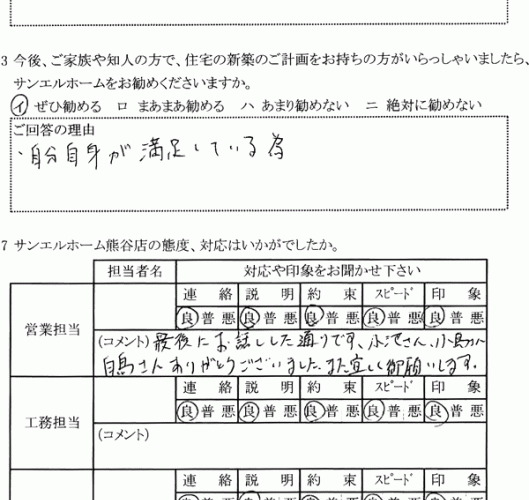 3 今後、ご家族や知人の方で、住宅の新築のご計画をお持ちの方がいらっしゃいましたら、
サンエルホームをお勧めくださいますか。
イ ぜひ勧める ロ まあまあ勧める ハ あまり勧めない ニ 絶対に勧めない
ご回答の理由
・自分自身が満足している為
7 サンエルホーム熊谷店の態度、対応はいかがでしたか。
担当者名 対応や印象をお聞かせ下さい
営業担当
連絡 説明 約束 スピード 印象
良 普 悪 良 普 悪 良 普 悪 良 普 悪 良 普 悪
(コメント) 最後にお話しした通りです、小池さん、
白鳥さんありがとうございました。また宜しく御願いします。
工務担当
連絡 説明 約束 スピード 印象
良 普 悪 良 普 悪 良 普 悪 良 普 悪 良 普 悪
(コメント)
連絡 説明 約束 スピード 印象
良 普 悪 良 普 悪 良 普 悪 良 普 悪 良 普 悪